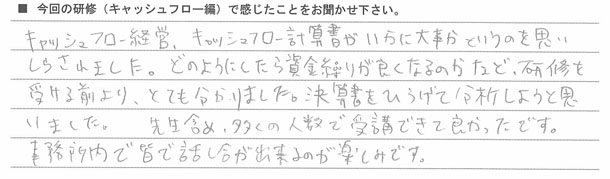 ■ 今回の研修（キャッシュフロー編）で感じたことをお聞かせ下さい。
キャッシュフロー経営、キャッシュフロー計算書がいかに大事かというのを思い
しらされました。どのようにしたら資金繰りが良くなるのかなど、研修を
受ける前より、とても分かりました。決算書をひろげて分析しようと思
いました。 先生含め、多くの人数で受講できて良かったです。
事務所内で皆で話し合が出来るのが楽しみです。